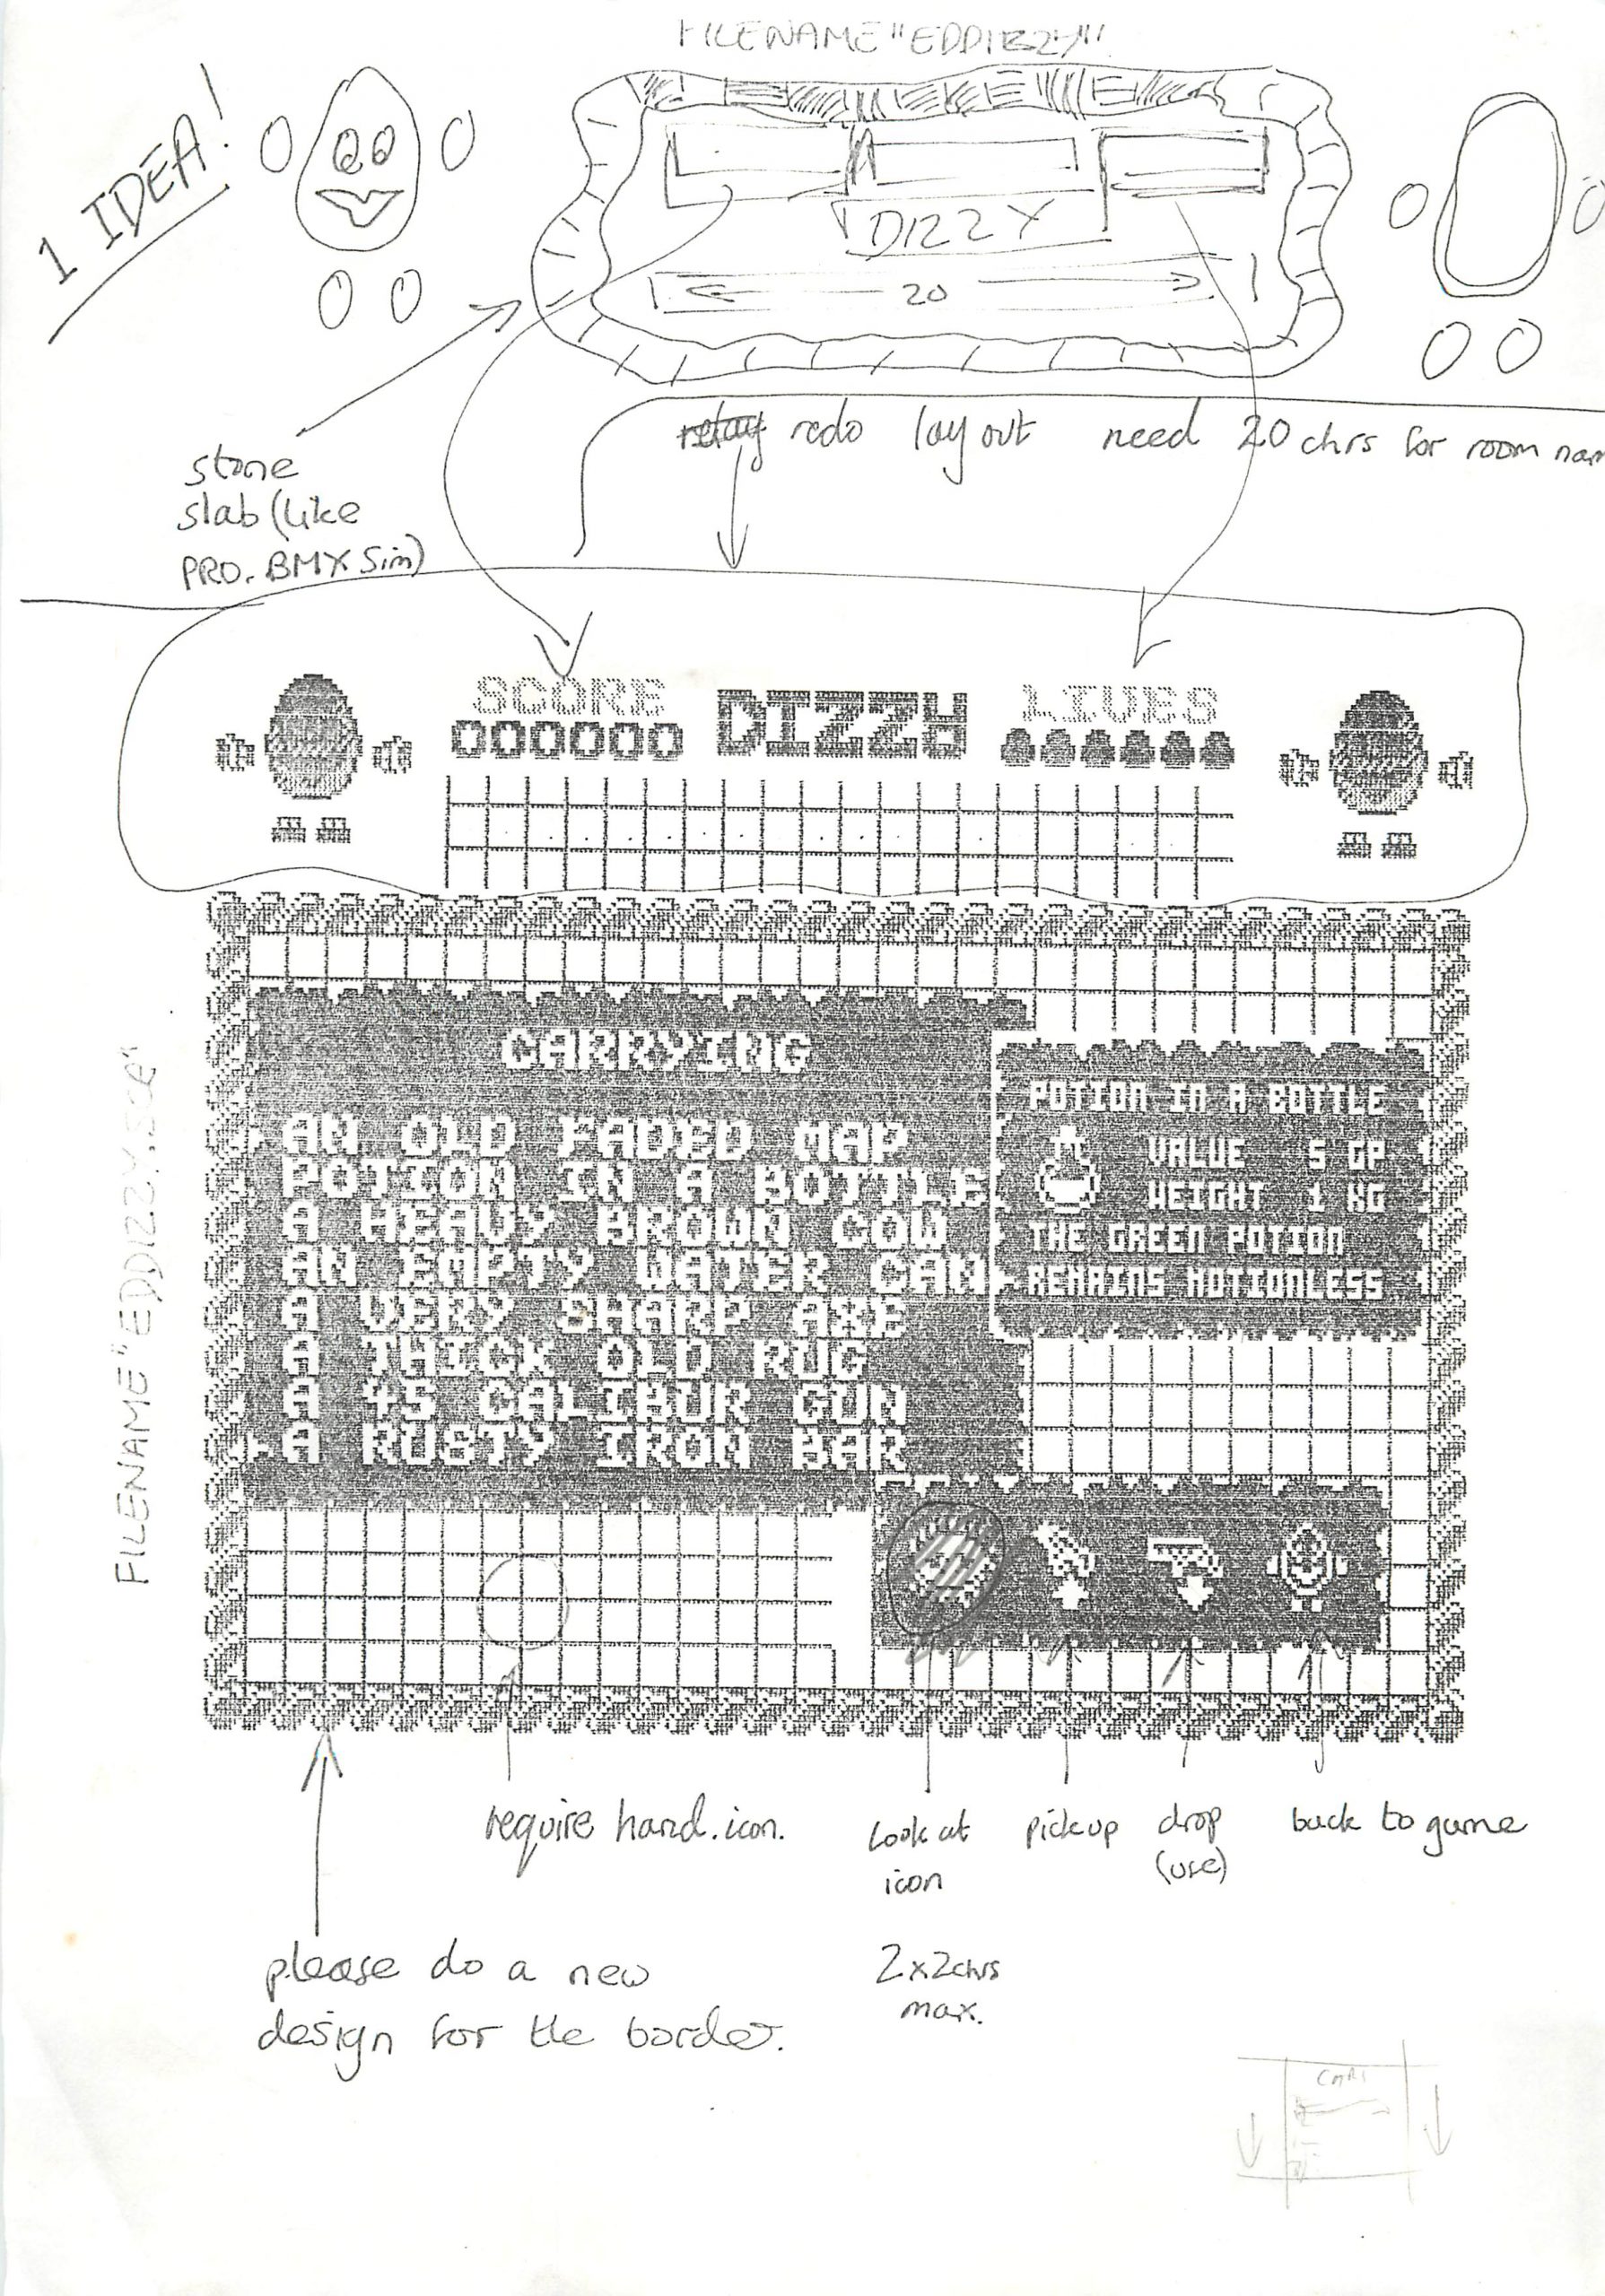 FILENAME "EDDIZZY"
1 IDEA!
DIZZY
20
redo layout need 20 chrs for room nam
stone
slab (like
PRO. BMX Sim)
SCORE DIZZY LIVES
000000
CARRYING
AN OLD FADED MAP
POTION IN A BOTTLE
A HEAVY BROWN COW
AN EMPTY WATER CAN
A VERY SHARP AXE
A THICK OLD RUG
A 45 CALIBUR GUN
A RUSTY IRON BAR
POTION IN A BOTTLE
VALUE 5 GP
WEIGHT 1 KG
THE GREEN POTION
REMAINS MOTIONLESS
FILENAME "EDDIZZY.SCE"
require hand.icon.
Look at
icon
pickup
drop
(use)
back to game
2x2chrs
max.
please do a new
design for the border.